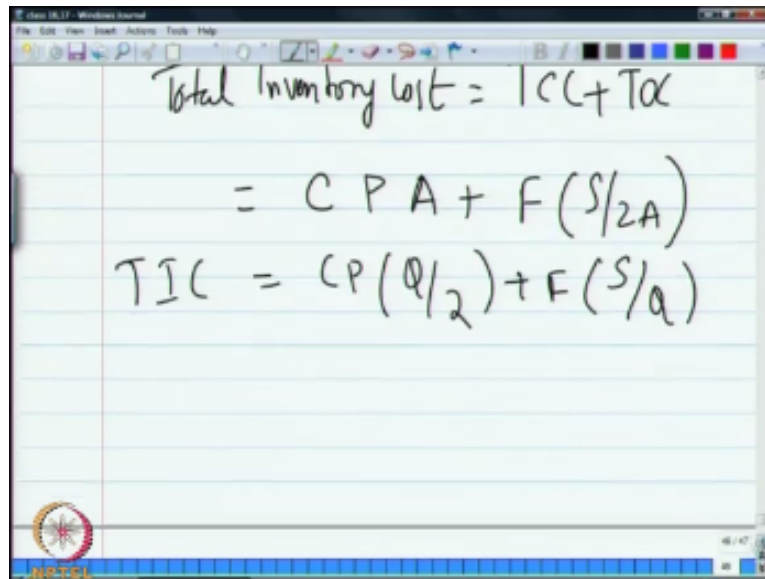 class 16,17 - Windows Journal
File Edit View Insert Actions Tools Help
Total Inventory Cost = TCC + TOC
= C P A + F (S/2A)
TIC = CP (Q/2) + F (S/Q)
46 / 47
NPTEL